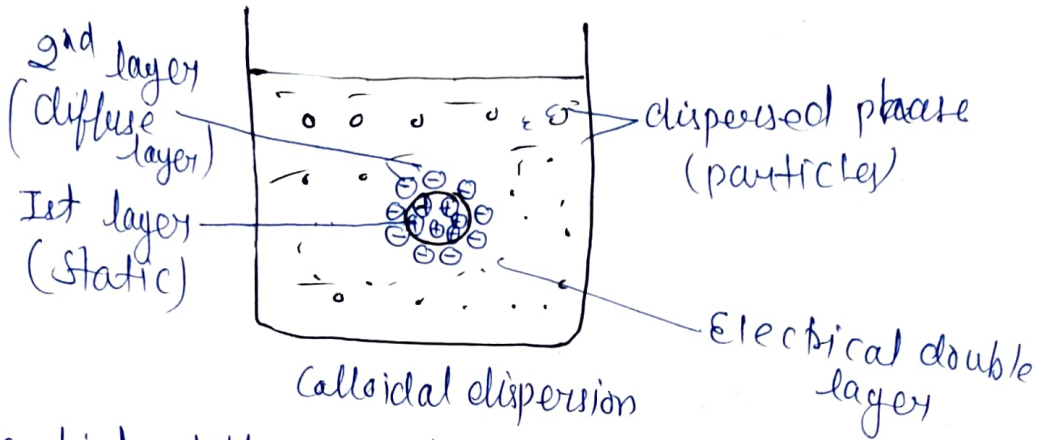 2nd layer
(diffuse
layer)
Ist layer
(static)
dispersed phase
(particles)
Electrical double
layer
Colloidal dispersion